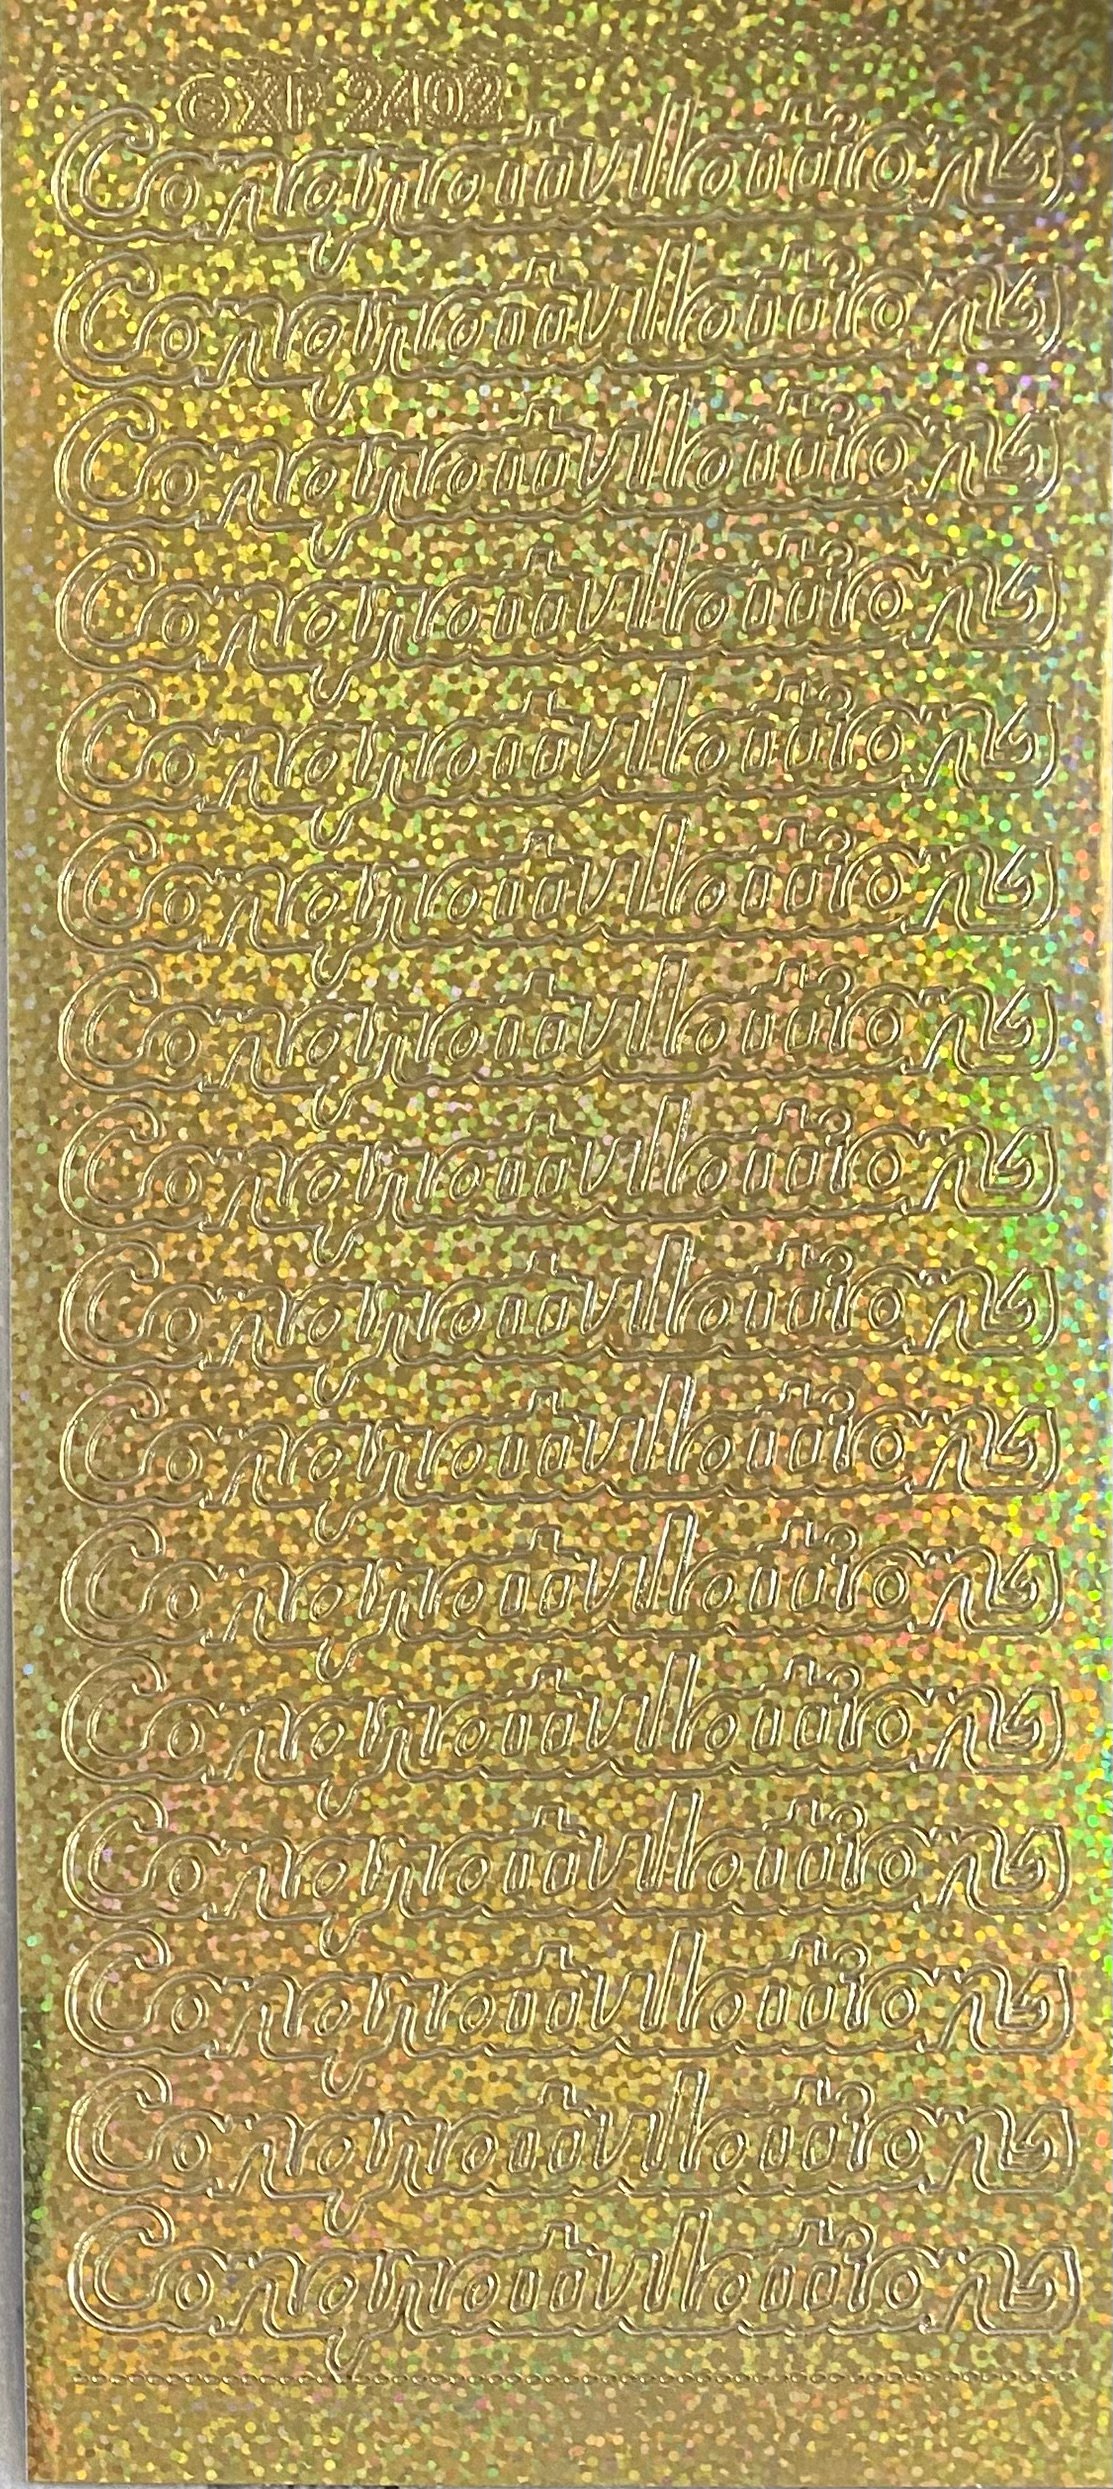 ©XP 2402
Congratulations
Congratulations
Congratulations
Congratulations
Congratulations
Congratulations
Congratulations
Congratulations
Congratulations
Congratulations
Congratulations
Congratulations
Congratulations
Congratulations
Congratulations
Congratulations